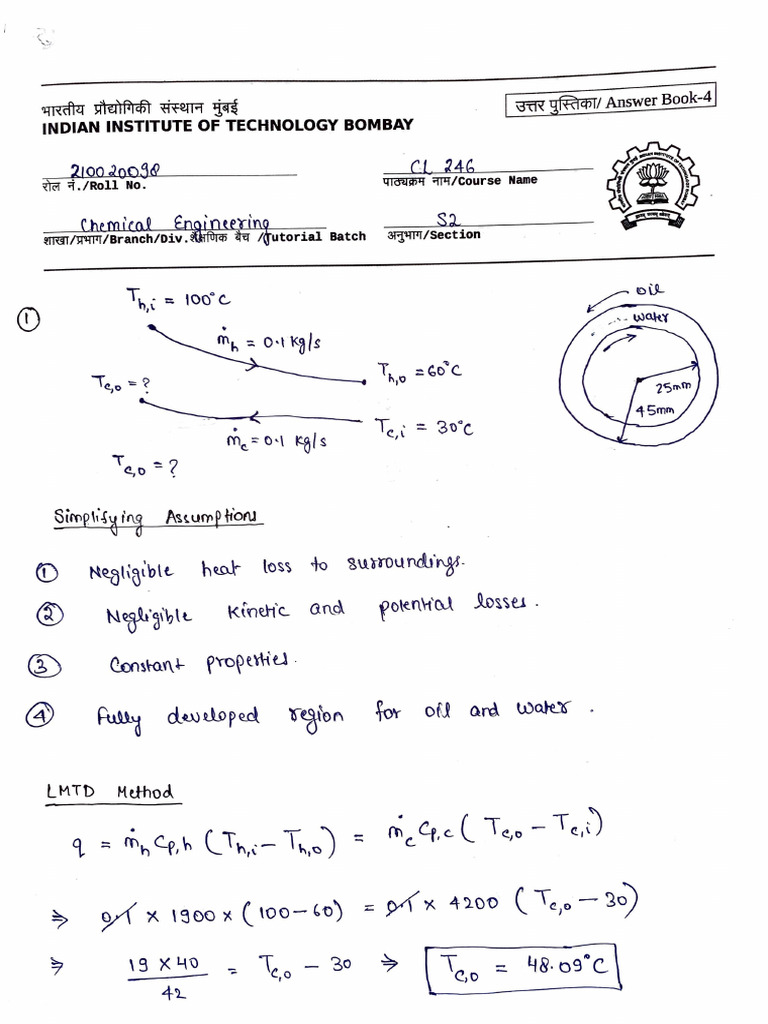 भारतीय प्रौद्योगिकी संस्थान मुंबई
उत्तर पुस्तिका/ Answer Book-4
INDIAN INSTITUTE OF TECHNOLOGY BOMBAY
210020098
CL 246
रोल नं./Roll No.
पाठ्यक्रम नाम/Course Name
Chemical Engineering
S2
शाखा/प्रभाग/Branch/Div.शैक्षणिक बैच /Tutorial Batch
अनुभाग/Section
①
T_h,i = 100°C
ṁ_h = 0.1 kg/s
T_h,o = 60°C
T_c,o = ?
T_c,i = 30°C
ṁ_c = 0.1 kg/s
T_c,o = ?
oil
water
25mm
45mm
Simplifying Assumptions
① Negligible heat loss to surroundings.
② Negligible kinetic and potential losses.
③ Constant properties.
④ Fully developed region for oil and water.
LMTD Method
q = ṁ_h C_p,h (T_h,i − T_h,o) = ṁ_c C_p,c (T_c,o − T_c,i)
⇒ 0.1 × 1900 × (100−60) = 0.1 × 4200 (T_c,o − 30)
⇒ 19 × 40 / 42 = T_c,o − 30 ⇒ T_c,o = 48.09°C